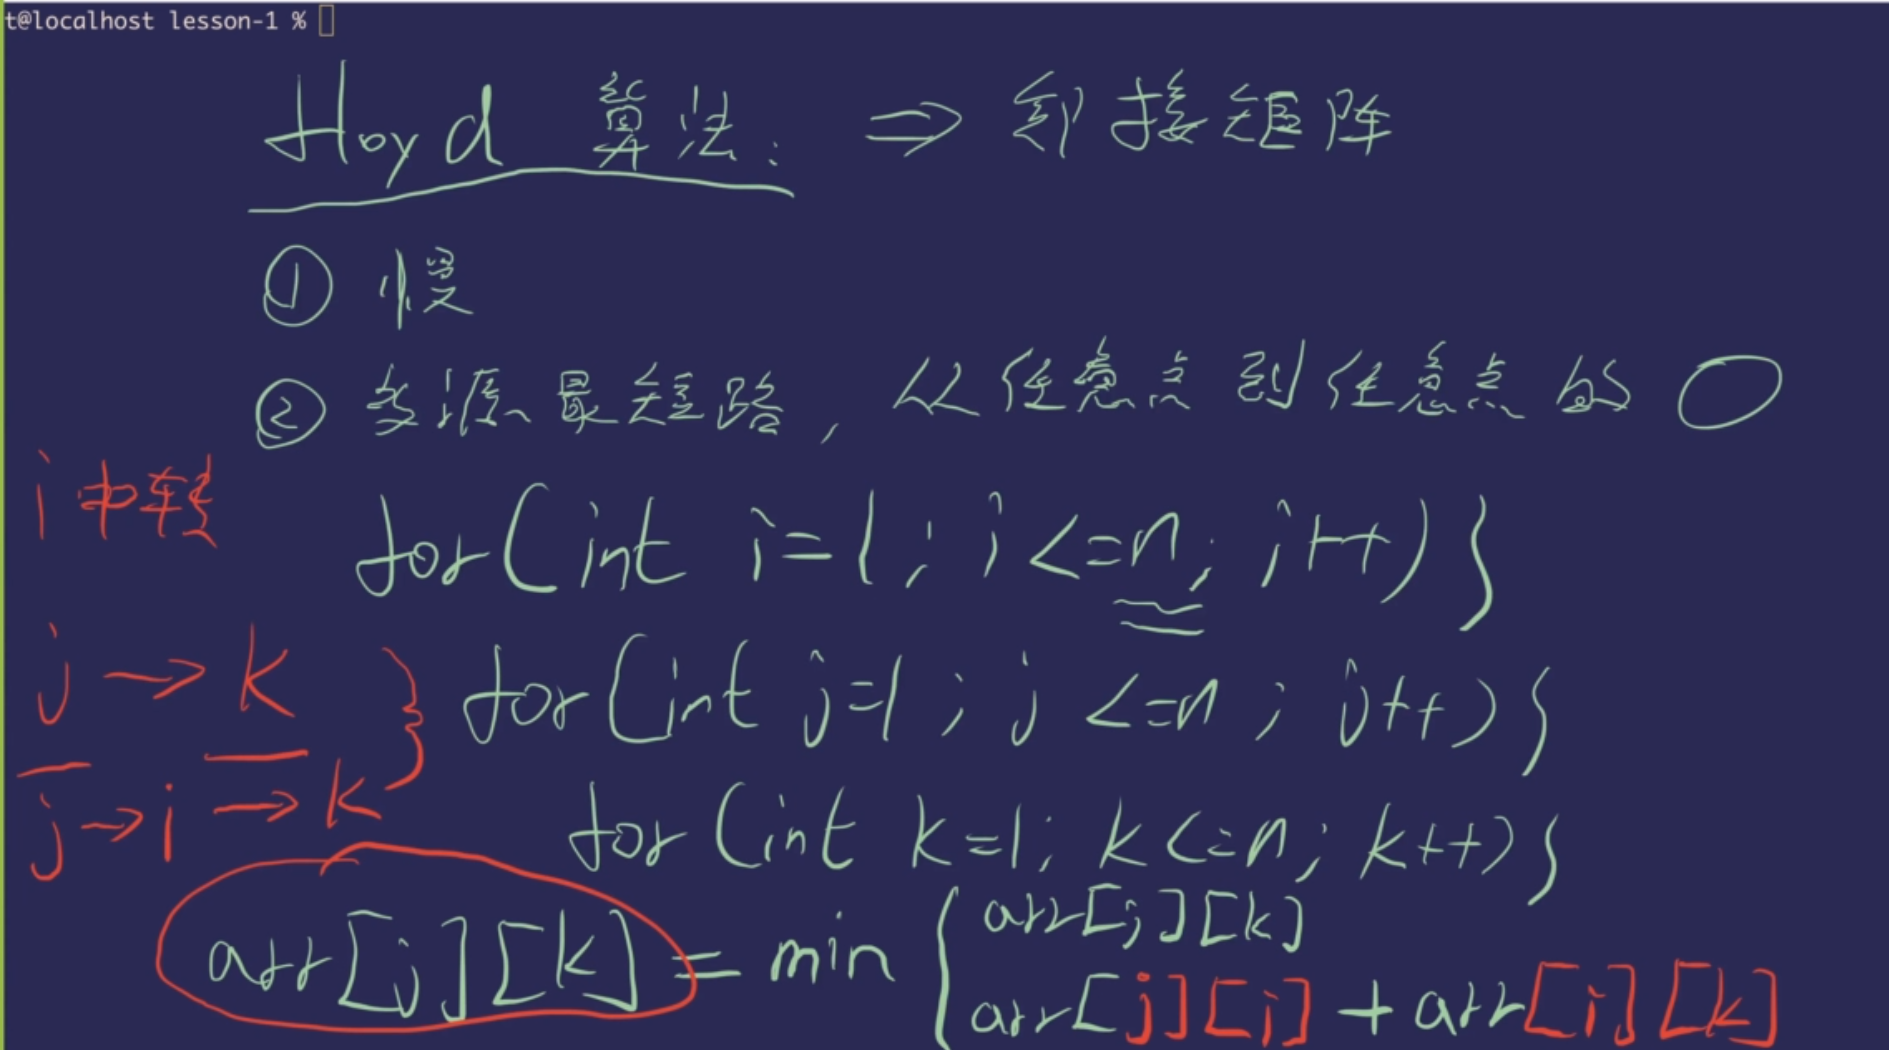 t@localhost lesson-1 %
Floyd 算法: ⇒ 邻接矩阵
① 慢
② 多源最短路, 从任意点到任意点的
i 中转
for(int i=1; i<=n; i++){
j → k
for(int j=1; j<=n; j++){
j→i → k
for(int k=1; k<=n; k++){
arr[j][k] = min { arr[j][k]
arr[j][i] + arr[i][k]